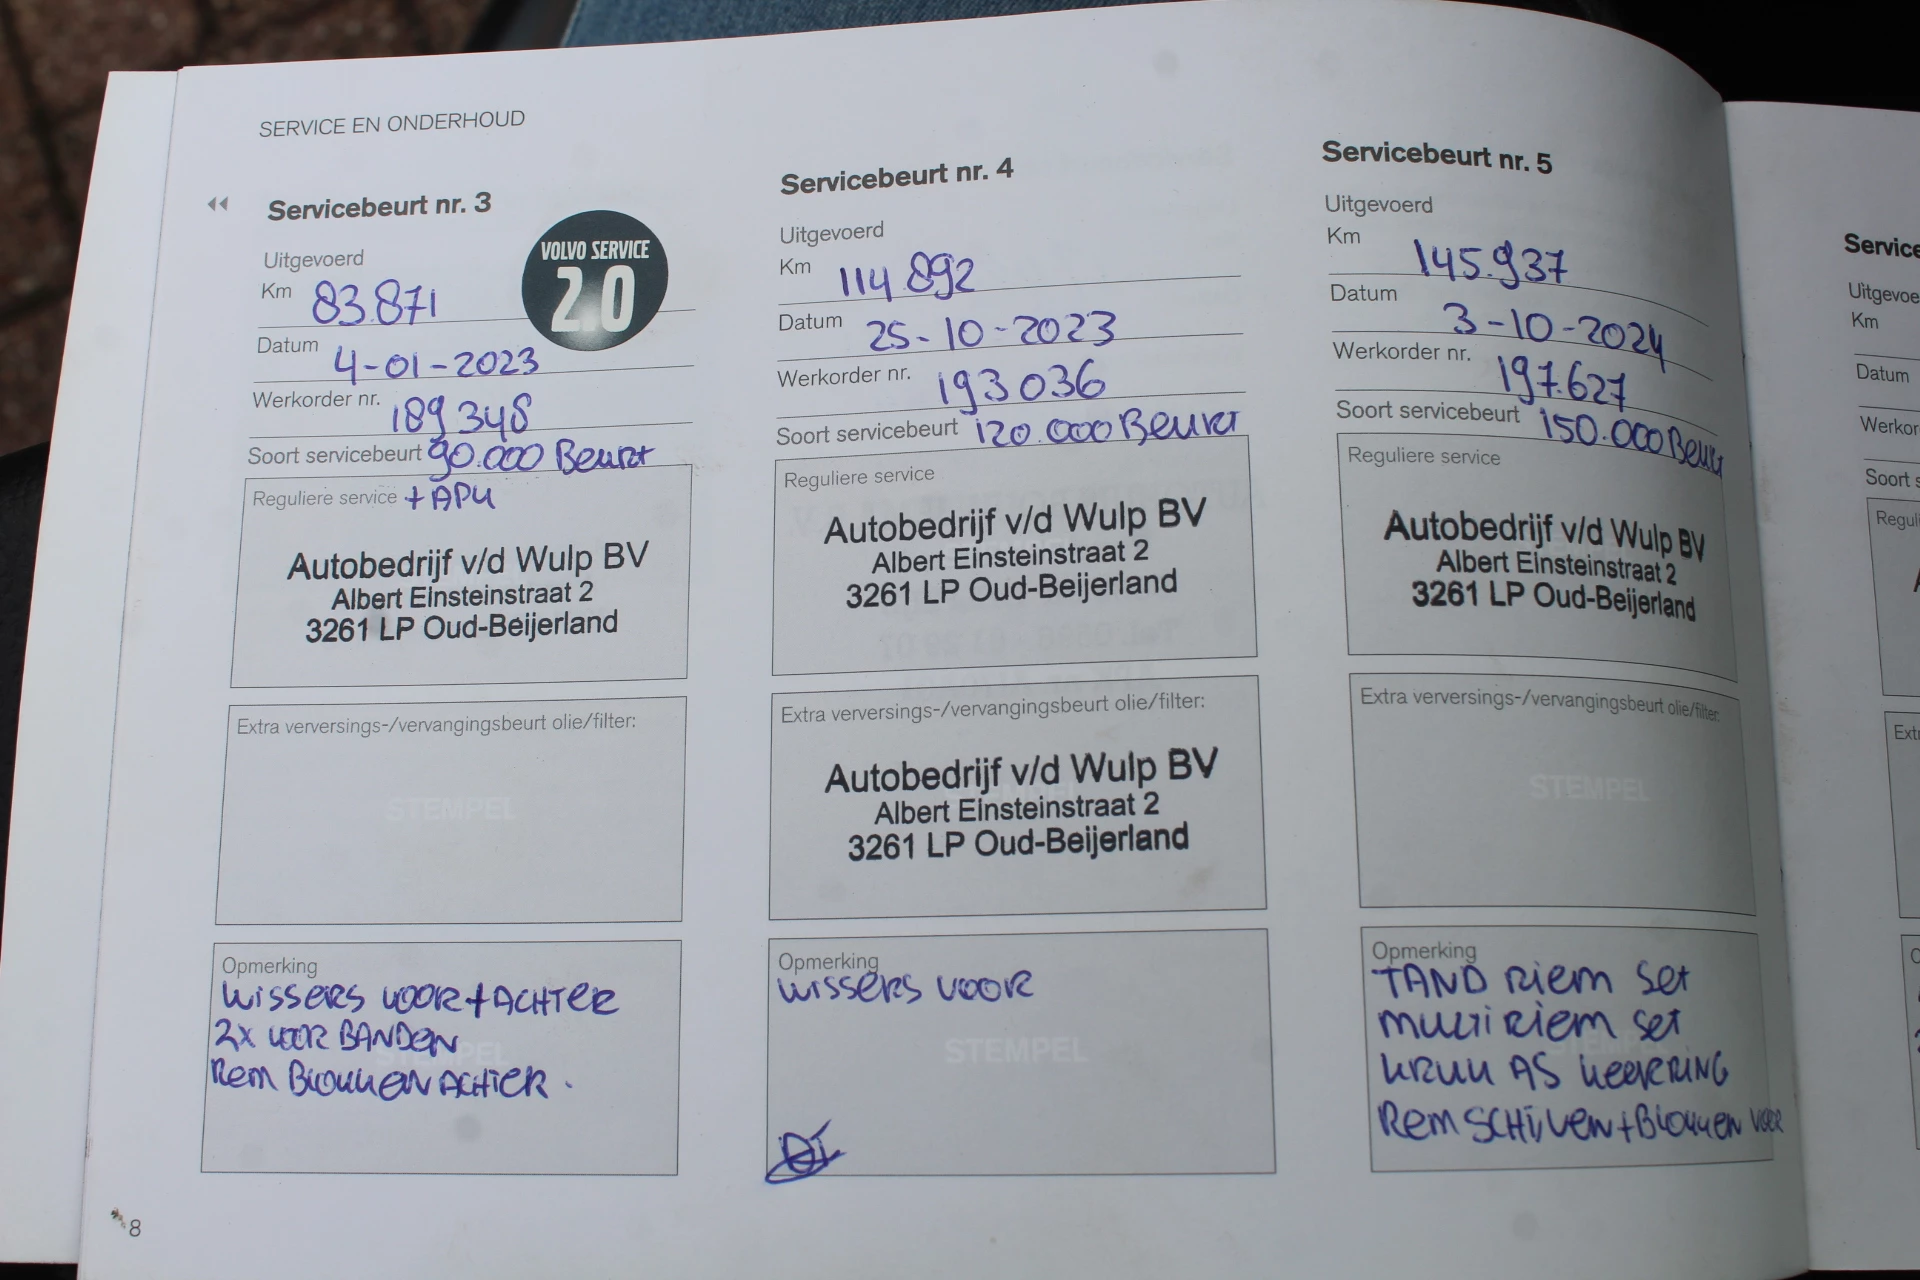 SERVICE EN ONDERHOUD
Servicebeurt nr. 3
VOLVO SERVICE
2.0
Uitgevoerd
Km 83.871
Datum 4-01-2023
Werkorder nr. 189348
Soort servicebeurt 90.000 Beurt
Reguliere service + APK
Autobedrijf v/d Wulp BV
Albert Einsteinstraat 2
3261 LP Oud-Beijerland
Extra verversings-/vervangingsbeurt olie/filter:
STEMPEL
Opmerking
WISSERS VOOR + ACHTER
2X VOOR BANDEN
Rem BLOKKEN ACHTER.
Servicebeurt nr. 4
Uitgevoerd
Km 114.892
Datum 25-10-2023
Werkorder nr. 193036
Soort servicebeurt 120.000 Beurt
Reguliere service
Autobedrijf v/d Wulp BV
Albert Einsteinstraat 2
3261 LP Oud-Beijerland
Extra verversings-/vervangingsbeurt olie/filter:
Autobedrijf v/d Wulp BV
Albert Einsteinstraat 2
3261 LP Oud-Beijerland
Opmerking
WISSERS VOOR
STEMPEL
Servicebeurt nr. 5
Uitgevoerd
Km 145.937
Datum 3-10-2024
Werkorder nr. 197.627
Soort servicebeurt 150.000 Beurt
Reguliere service
Autobedrijf v/d Wulp BV
Albert Einsteinstraat 2
3261 LP Oud-Beijerland
Extra verversings-/vervangingsbeurt olie/filter:
STEMPEL
Opmerking
TAND Riem Set
MULTI Riem Set
KRUK AS KEERRING
Rem SCHIJVEN + BLOKKEN VOOR
8
Service
Uitgevoe
Km
Datum
Werkor
Soort s
Reguli
Extr